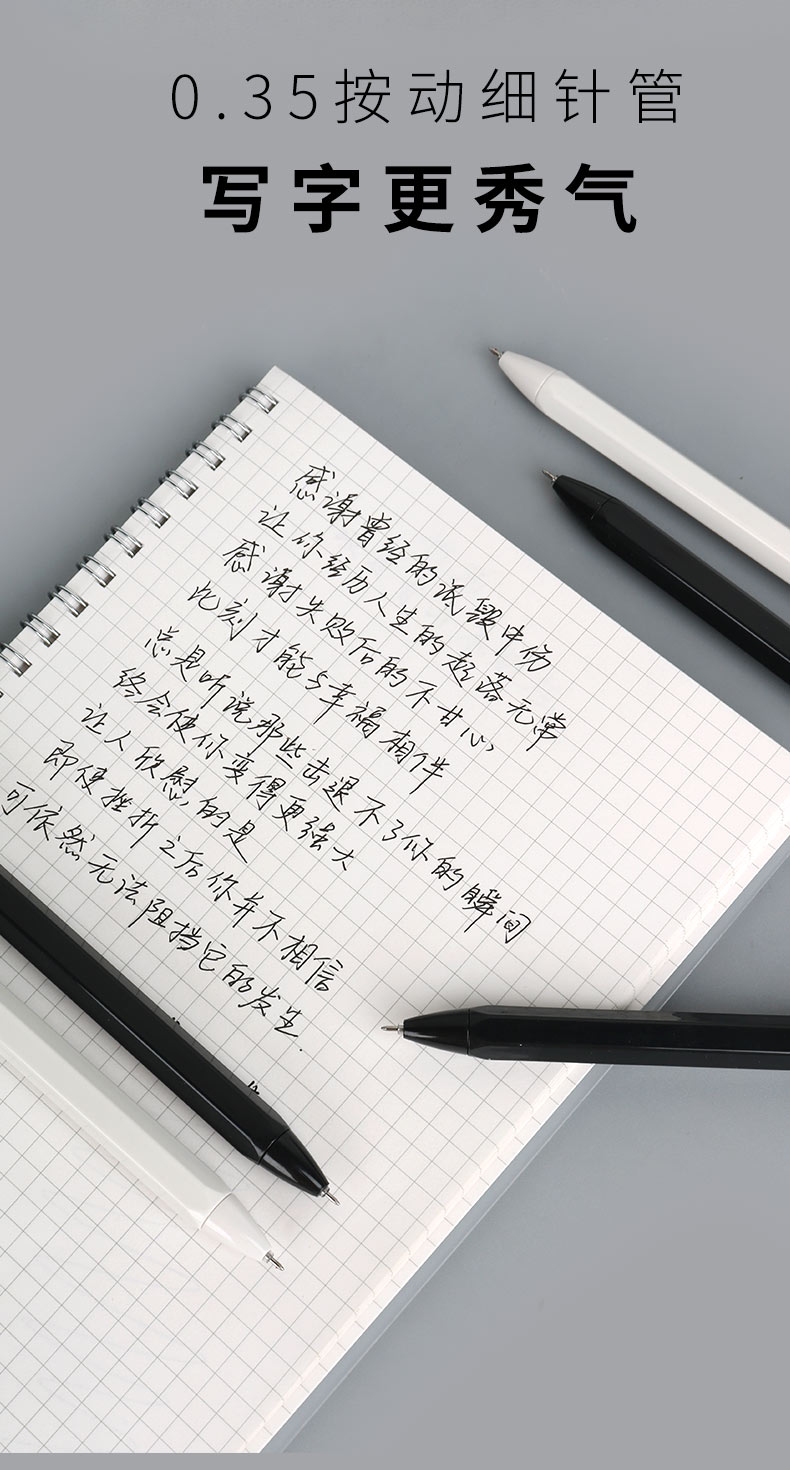 0.35按动细针管
写字更秀气
感谢曾经的诋毁中伤
让你经历人生的起落无常
感谢失败后的不甘心,
此刻才能与幸福相伴
总是听说那些击退不了你的瞬间
终会使你变得更强大
让人欣慰的是
即使挫折之后你并不相信
可依然无法阻挡它的发生.